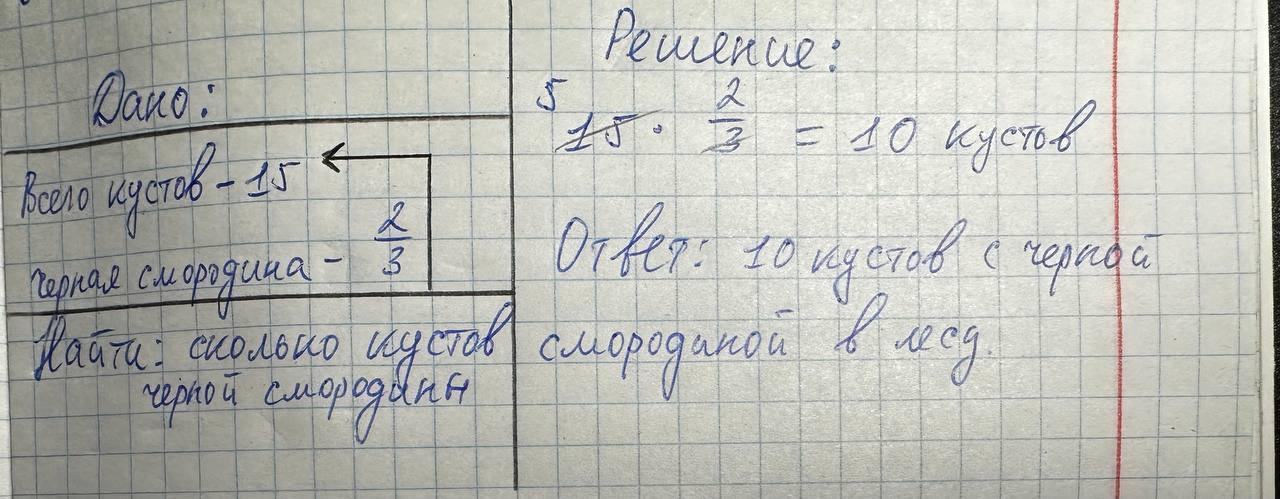 Дано:
Всего кустов - 15
черная смородина - 2/3
Найти: сколько кустов
черной смородины
Решение:
5
15 · 2/3 = 10 кустов
Ответ: 10 кустов с черной
смородиной в лесу.